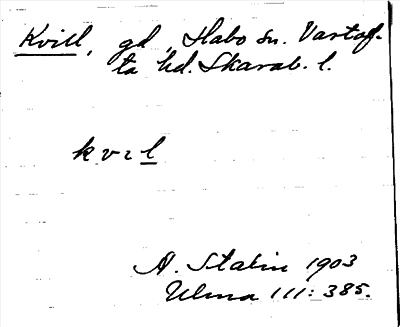 Kvill, gd, Habo sn. Vartof-
ta hd. Skarab. l.
kvɩl
A. Stalin 1903
Ulma 111:385.